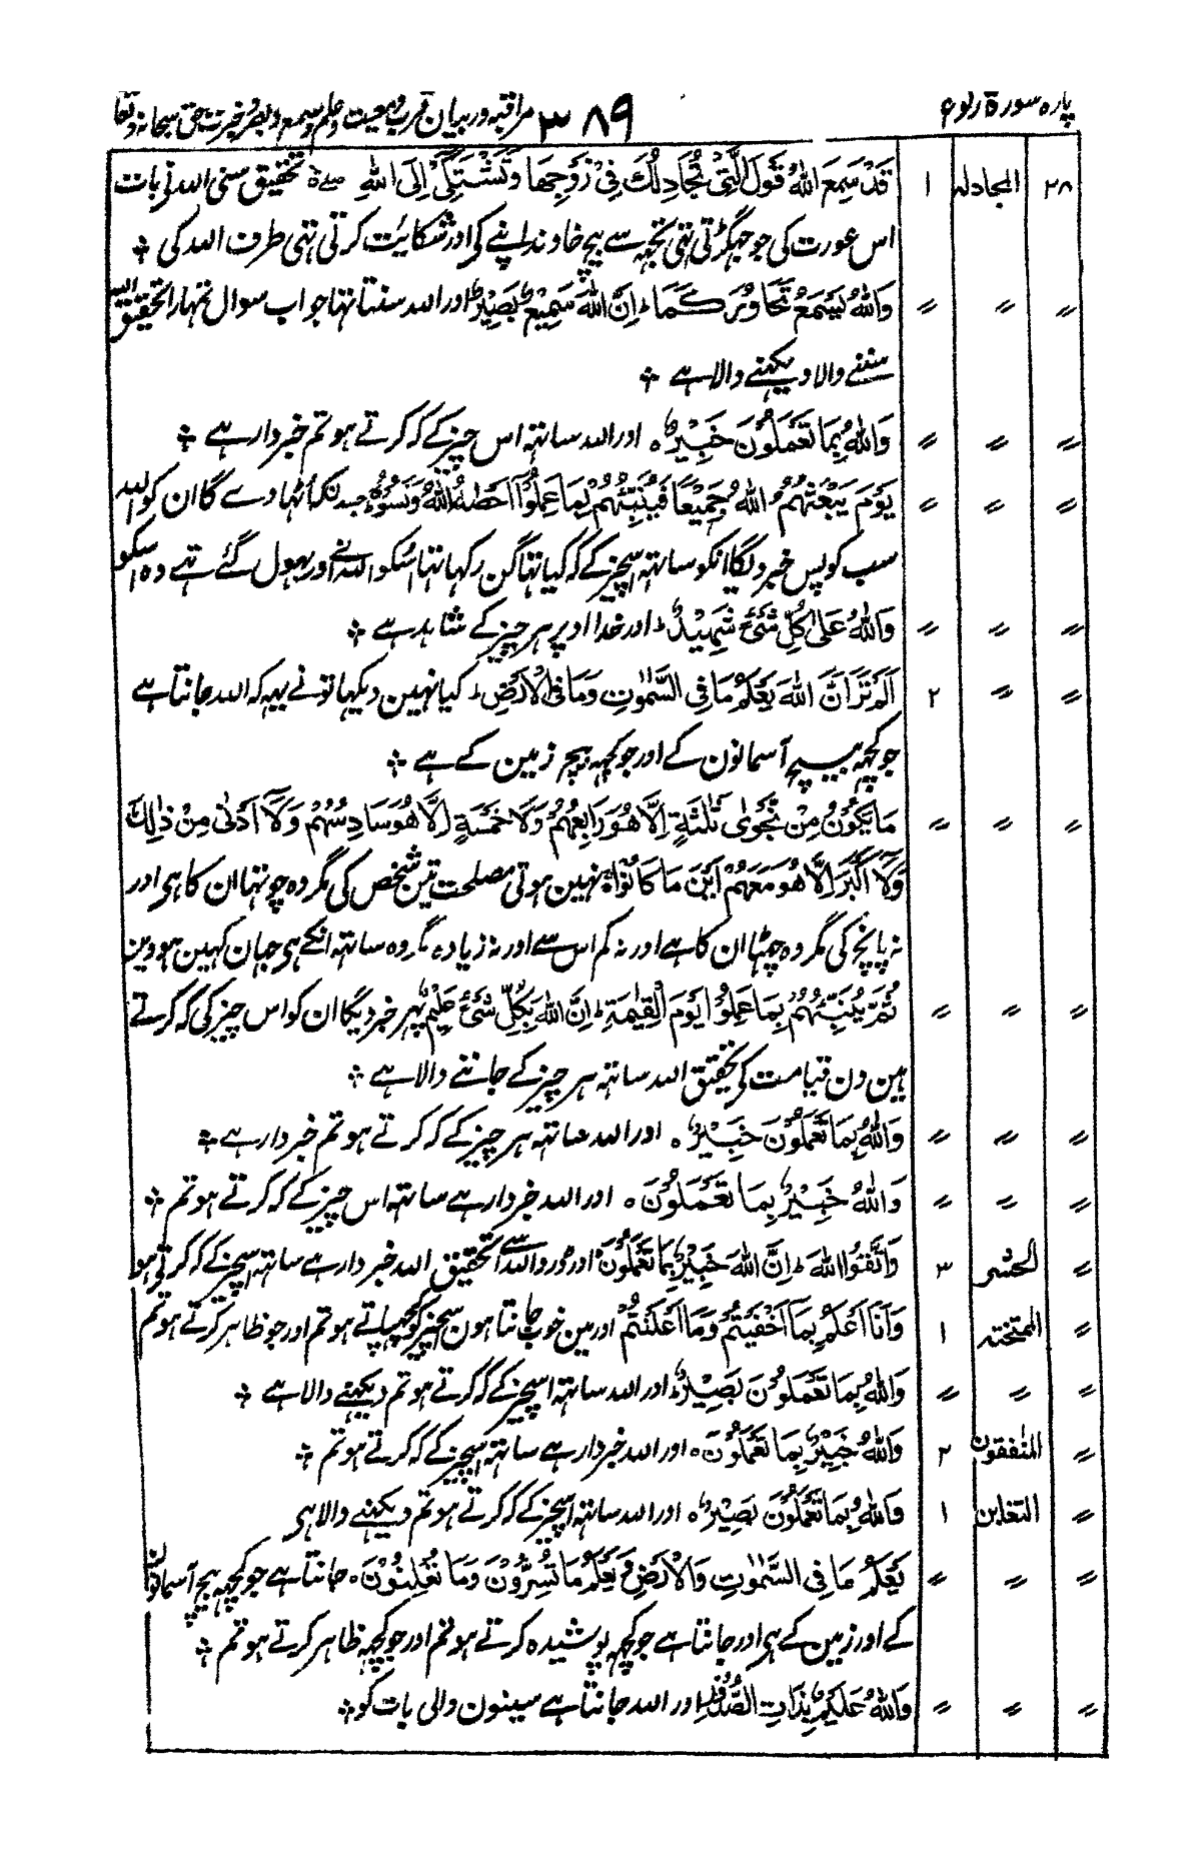 پارہ سورۃ رکوع ۳۸۹ مراقبہ در بیان قرب و معیت و علم و سمع و بصر و خبرت حق سبحانہ و تعا
۲۸ المجادلہ ۱ قَدْ سَمِعَ اللّٰهُ قَوْلَ الَّتِیْ تُجَادِلُكَ فِیْ زَوْجِهَا وَتَشْتَكِیْ اِلَی اللّٰهِ تحقیق سنی اللہ نے بات
اس عورت کی جو جہگڑتی تہی تجہہ سے بیچ خاوند اپنے کی اور شکائیت کرتی تہی طرف اللہ کی ۞
〃 〃 〃 وَاللّٰهُ یَسْمَعُ تَحَاوُرَكُمَا ؕ اِنَّ اللّٰهَ سَمِیْعٌۢ بَصِیْرٌ اور اللہ سنتا تہا جواب سوال تمہارا تحقیق اللہ
سننے والا دیکہنے والا ہے ۞
〃 〃 〃 وَاللّٰهُ بِمَا تَعْمَلُوْنَ خَبِیْرٌ ہ اور اللہ ساتہہ اس چیز کے کہ کرتے ہو تم خبردار ہے ۞
〃 〃 〃 یَوْمَ یَبْعَثُهُمُ اللّٰهُ جَمِیْعًا فَیُنَبِّئُهُمْ بِمَا عَمِلُوْا اَحْصٰهُ اللّٰهُ وَنَسُوْهُ جسدن کہ اُٹہا دے گا ان کو اللہ
سب کو پس خبر دیگا انکو ساتہہ اسچیز کے کہ کیا تہا گن رکہا تہا اسکو اللہ نے اور بہول گئے تہے وہ اسکو
〃 〃 〃 وَاللّٰهُ عَلٰی كُلِّ شَیْءٍ شَهِیْدٌ ؕ اور خدا اوپر ہر چیز کے شاہد ہے ۞
〃 〃 ۲ اَلَمْ تَرَ اَنَّ اللّٰهَ یَعْلَمُ مَا فِی السَّمٰوٰتِ وَمَا فِی الْاَرْضِ ؕ کیا نہین دیکہا تو نے یہہ کہ اللہ جانتا ہے
جو کچہہ بیچ آسمانون کے اور جو کچہہ بیچ زمین کے ہے ۞
〃 〃 〃 مَا یَكُوْنُ مِنْ نَّجْوٰی ثَلٰثَةٍ اِلَّا هُوَ رَابِعُهُمْ وَلَا خَمْسَةٍ اِلَّا هُوَ سَادِسُهُمْ وَلَاۤ اَدْنٰی مِنْ ذٰلِكَ
وَلَاۤ اَكْثَرَ اِلَّا هُوَ مَعَهُمْ اَیْنَ مَا كَانُوْا نہین ہوتی مصلحت تین شخص کی مگر وہ چوتہا ان کا ہی اور
نہ پانچ کی مگر وہ چہٹا ان کا ہے اور نہ کم اس سے اور نہ زیادہ مگر وہ ساتہہ انکے ہی جہان کہین ہووین
〃 〃 〃 ثُمَّ یُنَبِّئُهُمْ بِمَا عَمِلُوْا یَوْمَ الْقِیٰمَةِ ؕ اِنَّ اللّٰهَ بِكُلِّ شَیْءٍ عَلِیْمٌ پہر خبر دیگا ان کو اس چیز کی کہ کرتے
ہین دن قیامت کی تحقیق اللہ ساتہہ ہر چیز کے جاننے والا ہے ۞
〃 〃 〃 وَاللّٰهُ بِمَا تَعْمَلُوْنَ خَبِیْرٌ ہ اور اللہ ساتہہ ہر چیز کے کہ کرتے ہو تم خبردار ہے ۞
〃 〃 〃 وَاللّٰهُ خَبِیْرٌۢ بِمَا تَعْمَلُوْنَ ہ اور اللہ خبردار ہے ساتہہ اس چیز کے کہ کرتے ہو تم ۞
〃 الحشر ۳ وَاتَّقُوا اللّٰهَ ؕ اِنَّ اللّٰهَ خَبِیْرٌۢ بِمَا تَعْمَلُوْنَ اور ڈرو اللہ سے تحقیق اللہ خبردار ہے ساتہہ اسچیز کے کہ کرتی ہو
〃 الممتحنہ ۱ وَاَنَا اَعْلَمُ بِمَاۤ اَخْفَیْتُمْ وَمَاۤ اَعْلَنْتُمْ اور مین خوب جانتا ہون اسچیز کو چہپاتے ہو تم اور جو ظاہر کرتے ہو تم
〃 〃 〃 وَاللّٰهُ بِمَا تَعْمَلُوْنَ بَصِیْرٌ ؕ اور اللہ ساتہہ اسچیز کے کہ کرتے ہو تم دیکہنے والا ہے ۞
〃 المنٰفقون ۲ وَاللّٰهُ خَبِیْرٌۢ بِمَا تَعْمَلُوْنَ ہ اور اللہ خبردار ہے ساتہہ اسچیز کے کہ کرتے ہو تم ۞
〃 التغابن ۱ وَاللّٰهُ بِمَا تَعْمَلُوْنَ بَصِیْرٌ ہ اور اللہ ساتہہ اسچیز کے کہ کرتے ہو تم دیکہنے والا ہی
〃 〃 〃 یَعْلَمُ مَا فِی السَّمٰوٰتِ وَالْاَرْضِ وَیَعْلَمُ مَا تُسِرُّوْنَ وَمَا تُعْلِنُوْنَ ہ جانتا ہے جو کچہہ بیچ آسمانون
کے اور زمین کے ہی اور جانتا ہے جو کچہہ پوشیدہ کرتے ہو تم اور جو کچہہ ظاہر کرتے ہو تم ۞
〃 〃 〃 وَاللّٰهُ عَلِیْمٌۢ بِذَاتِ الصُّدُوْرِ اور اللہ جانتا ہے سینون والی بات کو ۞